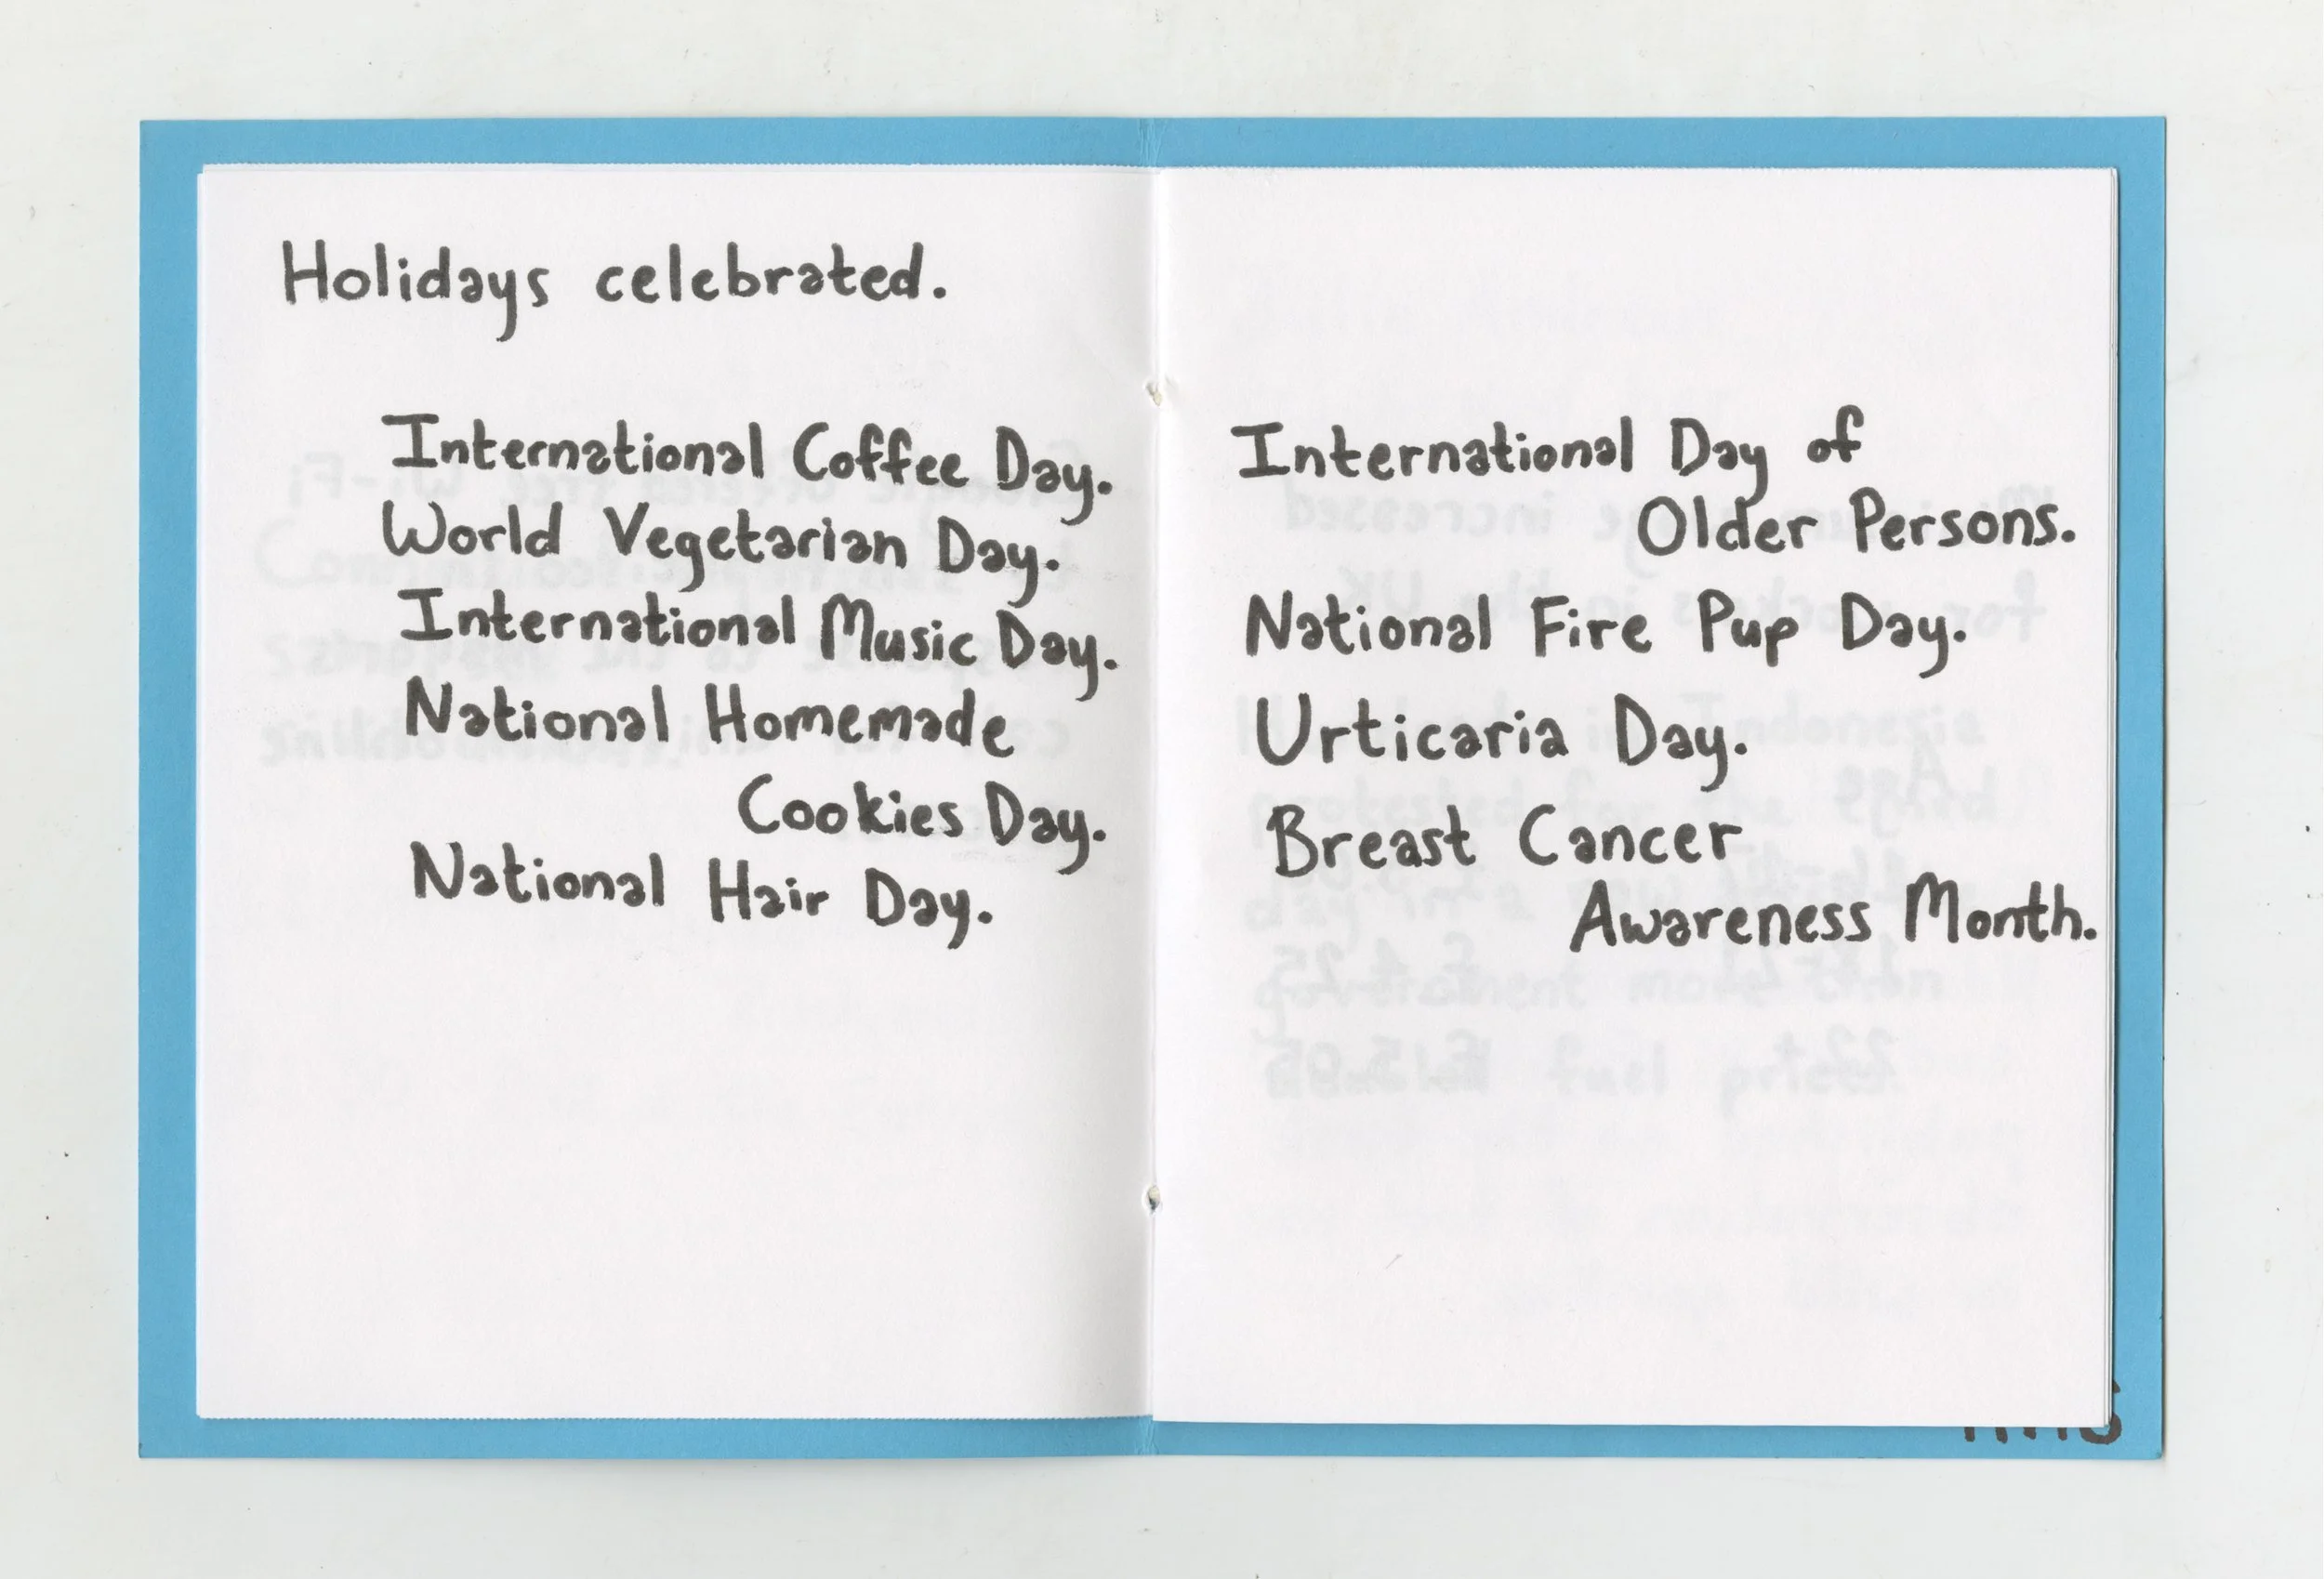 Holidays celebrated.
International Coffee Day.
World Vegetarian Day.
International Music Day.
National Homemade
Cookies Day.
National Hair Day.
International Day of
Older Persons.
National Fire Pup Day.
Urticaria Day.
Breast Cancer
Awareness Month.